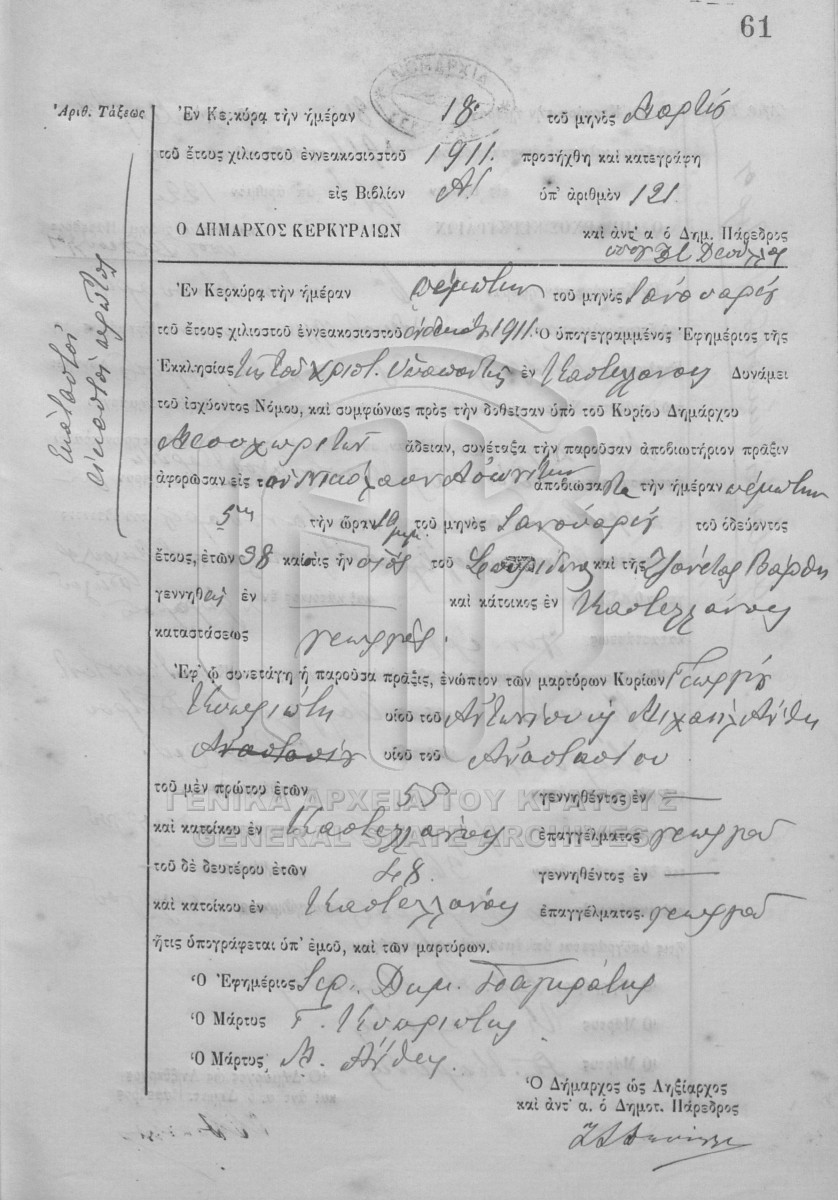 61
Ἀριθ. Τάξεως
Ἐν Κερκύρᾳ τὴν ἡμέραν 18 τοῦ μηνὸς Μαρτίου
τοῦ ἔτους χιλιοστοῦ ἐννεακοσιοστοῦ 1911. προσήχθη καὶ κατεγράφη
εἰς Βιβλίον Α. ὑπ' ἀριθμὸν 121
Ο ΔΗΜΑΡΧΟΣ ΚΕΡΚΥΡΑΙΩΝ
καὶ ἀντ' α ὁ Δημ. Πάρεδρος
Ἑκατοστοῦ εἰκοστοῦ πρώτου
Ἐν Κερκύρᾳ τὴν ἡμέραν πέμπτην τοῦ μηνὸς Ἰανουαρίου
τοῦ ἔτους χιλιοστοῦ ἐννεακοσιοστοῦ ἑνδεκάτου 1911. Ὁ ὑπογεγραμμένος Ἐφημέριος τῆς
Ἐκκλησίας τῆς τοῦ Χριστ. Ὑπαπαντῆς ἐν Καστελλάνους Δυνάμει
τοῦ ἰσχύοντος Νόμου, καὶ συμφώνως πρὸς τὴν δοθεῖσαν ὑπὸ τοῦ Κυρίου Δημάρχου
Μεσοχωριτῶν ἄδειαν, συνέταξα τὴν παροῦσαν ἀποβιωτήριον πρᾶξιν
ἀφορῶσαν εἰς τὸν Νικόλαον ἀποβιώσαντα τὴν ἡμέραν πέμπτην
5ην τὴν ὥραν 10 μ.μ. τοῦ μηνὸς Ἰανουαρίου τοῦ ὁδεύοντος
ἔτους, ἐτῶν 38 καὶ τις ἦν υἱὸς τοῦ Σπυρίδωνος καὶ τῆς Ζανέτας Βάρθη
γεννηθεὶς ἐν — καὶ κάτοικος ἐν Καστελλάνους
καταστάσεως γεωργός.
Ἐφ' ᾧ συνετάγη ἡ παροῦσα πρᾶξις, ἐνώπιον τῶν μαρτύρων Κυρίων Γεωργίου
Κυπριώτη υἱοῦ τοῦ Ἀντωνίου καὶ Μιχαὴλ Ἄνθη
Ἀναστασίου υἱοῦ τοῦ Ἀναστασίου
τοῦ μὲν πρώτου ἐτῶν 55 γεννηθέντος ἐν —
καὶ κατοίκου ἐν Καστελλάνους ἐπαγγέλματος γεωργοῦ
ΓΕΝΙΚΑ ΑΡΧΕΙΑ ΤΟΥ ΚΡΑΤΟΥΣ
GENERAL STATE ARCHIVES
τοῦ δὲ δευτέρου ἐτῶν 48. γεννηθέντος ἐν —
καὶ κατοίκου ἐν Καστελλάνους ἐπαγγέλματος. γεωργοῦ
ἥτις ὑπογράφεται ὑπ' ἐμοῦ, καὶ τῶν μαρτύρων.
Ὁ Ἐφημέριος Ἱερ. Δημ. Παγκράτης
Ὁ Μάρτυς Γ. Κυπριώτης
Ὁ Μάρτυς Μ. Ἄνθης.
Ὁ Δήμαρχος ὡς Ληξίαρχος
καὶ ἀντ' α. ὁ Δημοτ. Πάρεδρος